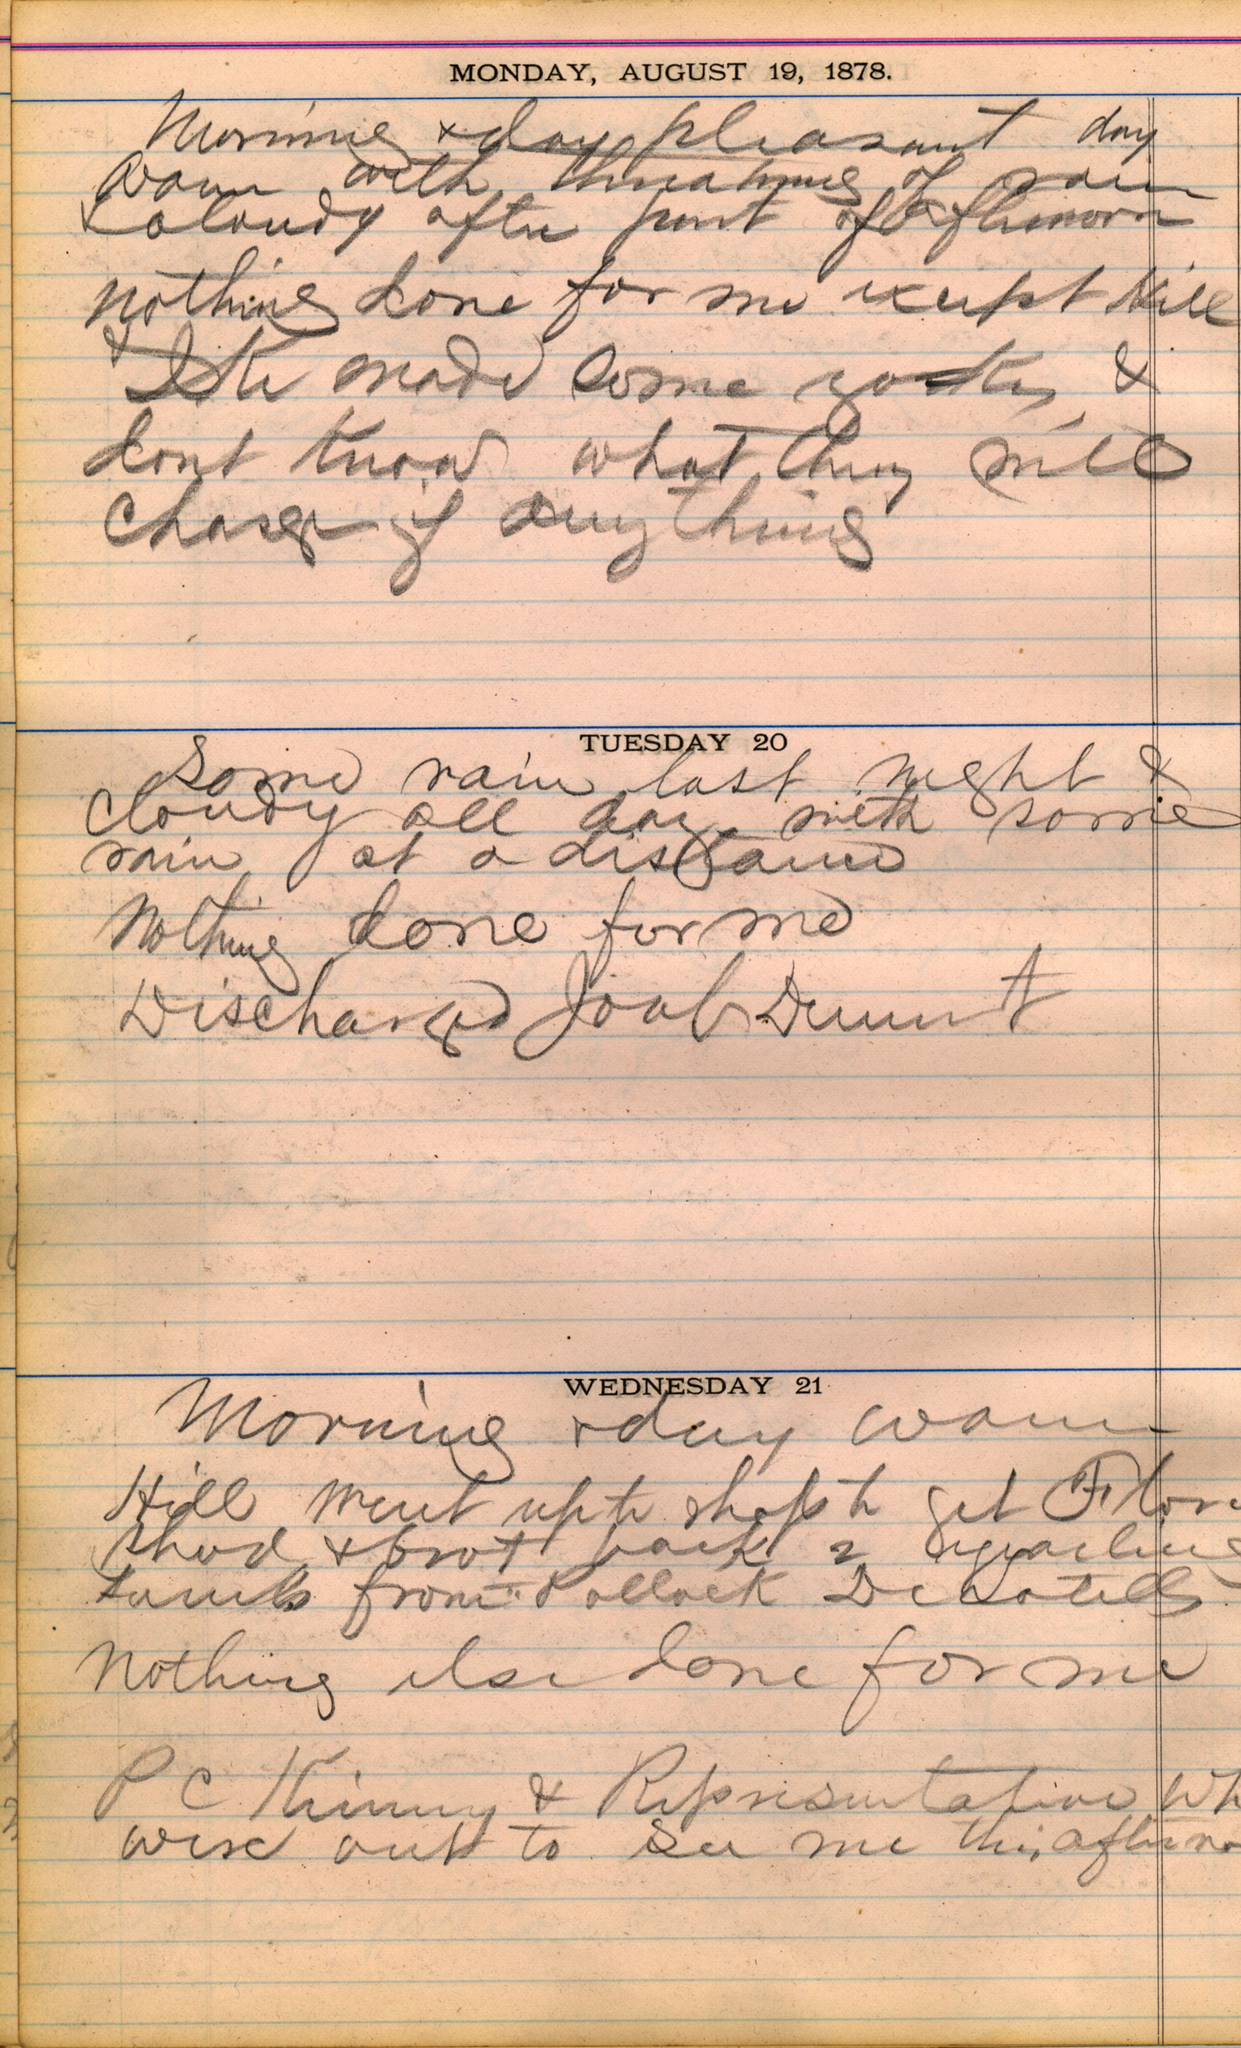 MONDAY, AUGUST 19, 1878.
Morning & day pleasant day
warm with threatning of rain
& cloudy after part of afternoon
nothing done for me except Hill
& Ike made some yokes &
dont know what they will
charge if anything
TUESDAY 20
Some rain last night &
cloudy all day with some
rain at a distance
Nothing done for me
Discharged Joab Dement
WEDNESDAY 21
Morning & day warm
Hill went up to shop to get
shod & brot back 2
from Pollock
Nothing else done for me
P C Kinney & Representative
were out to see me this